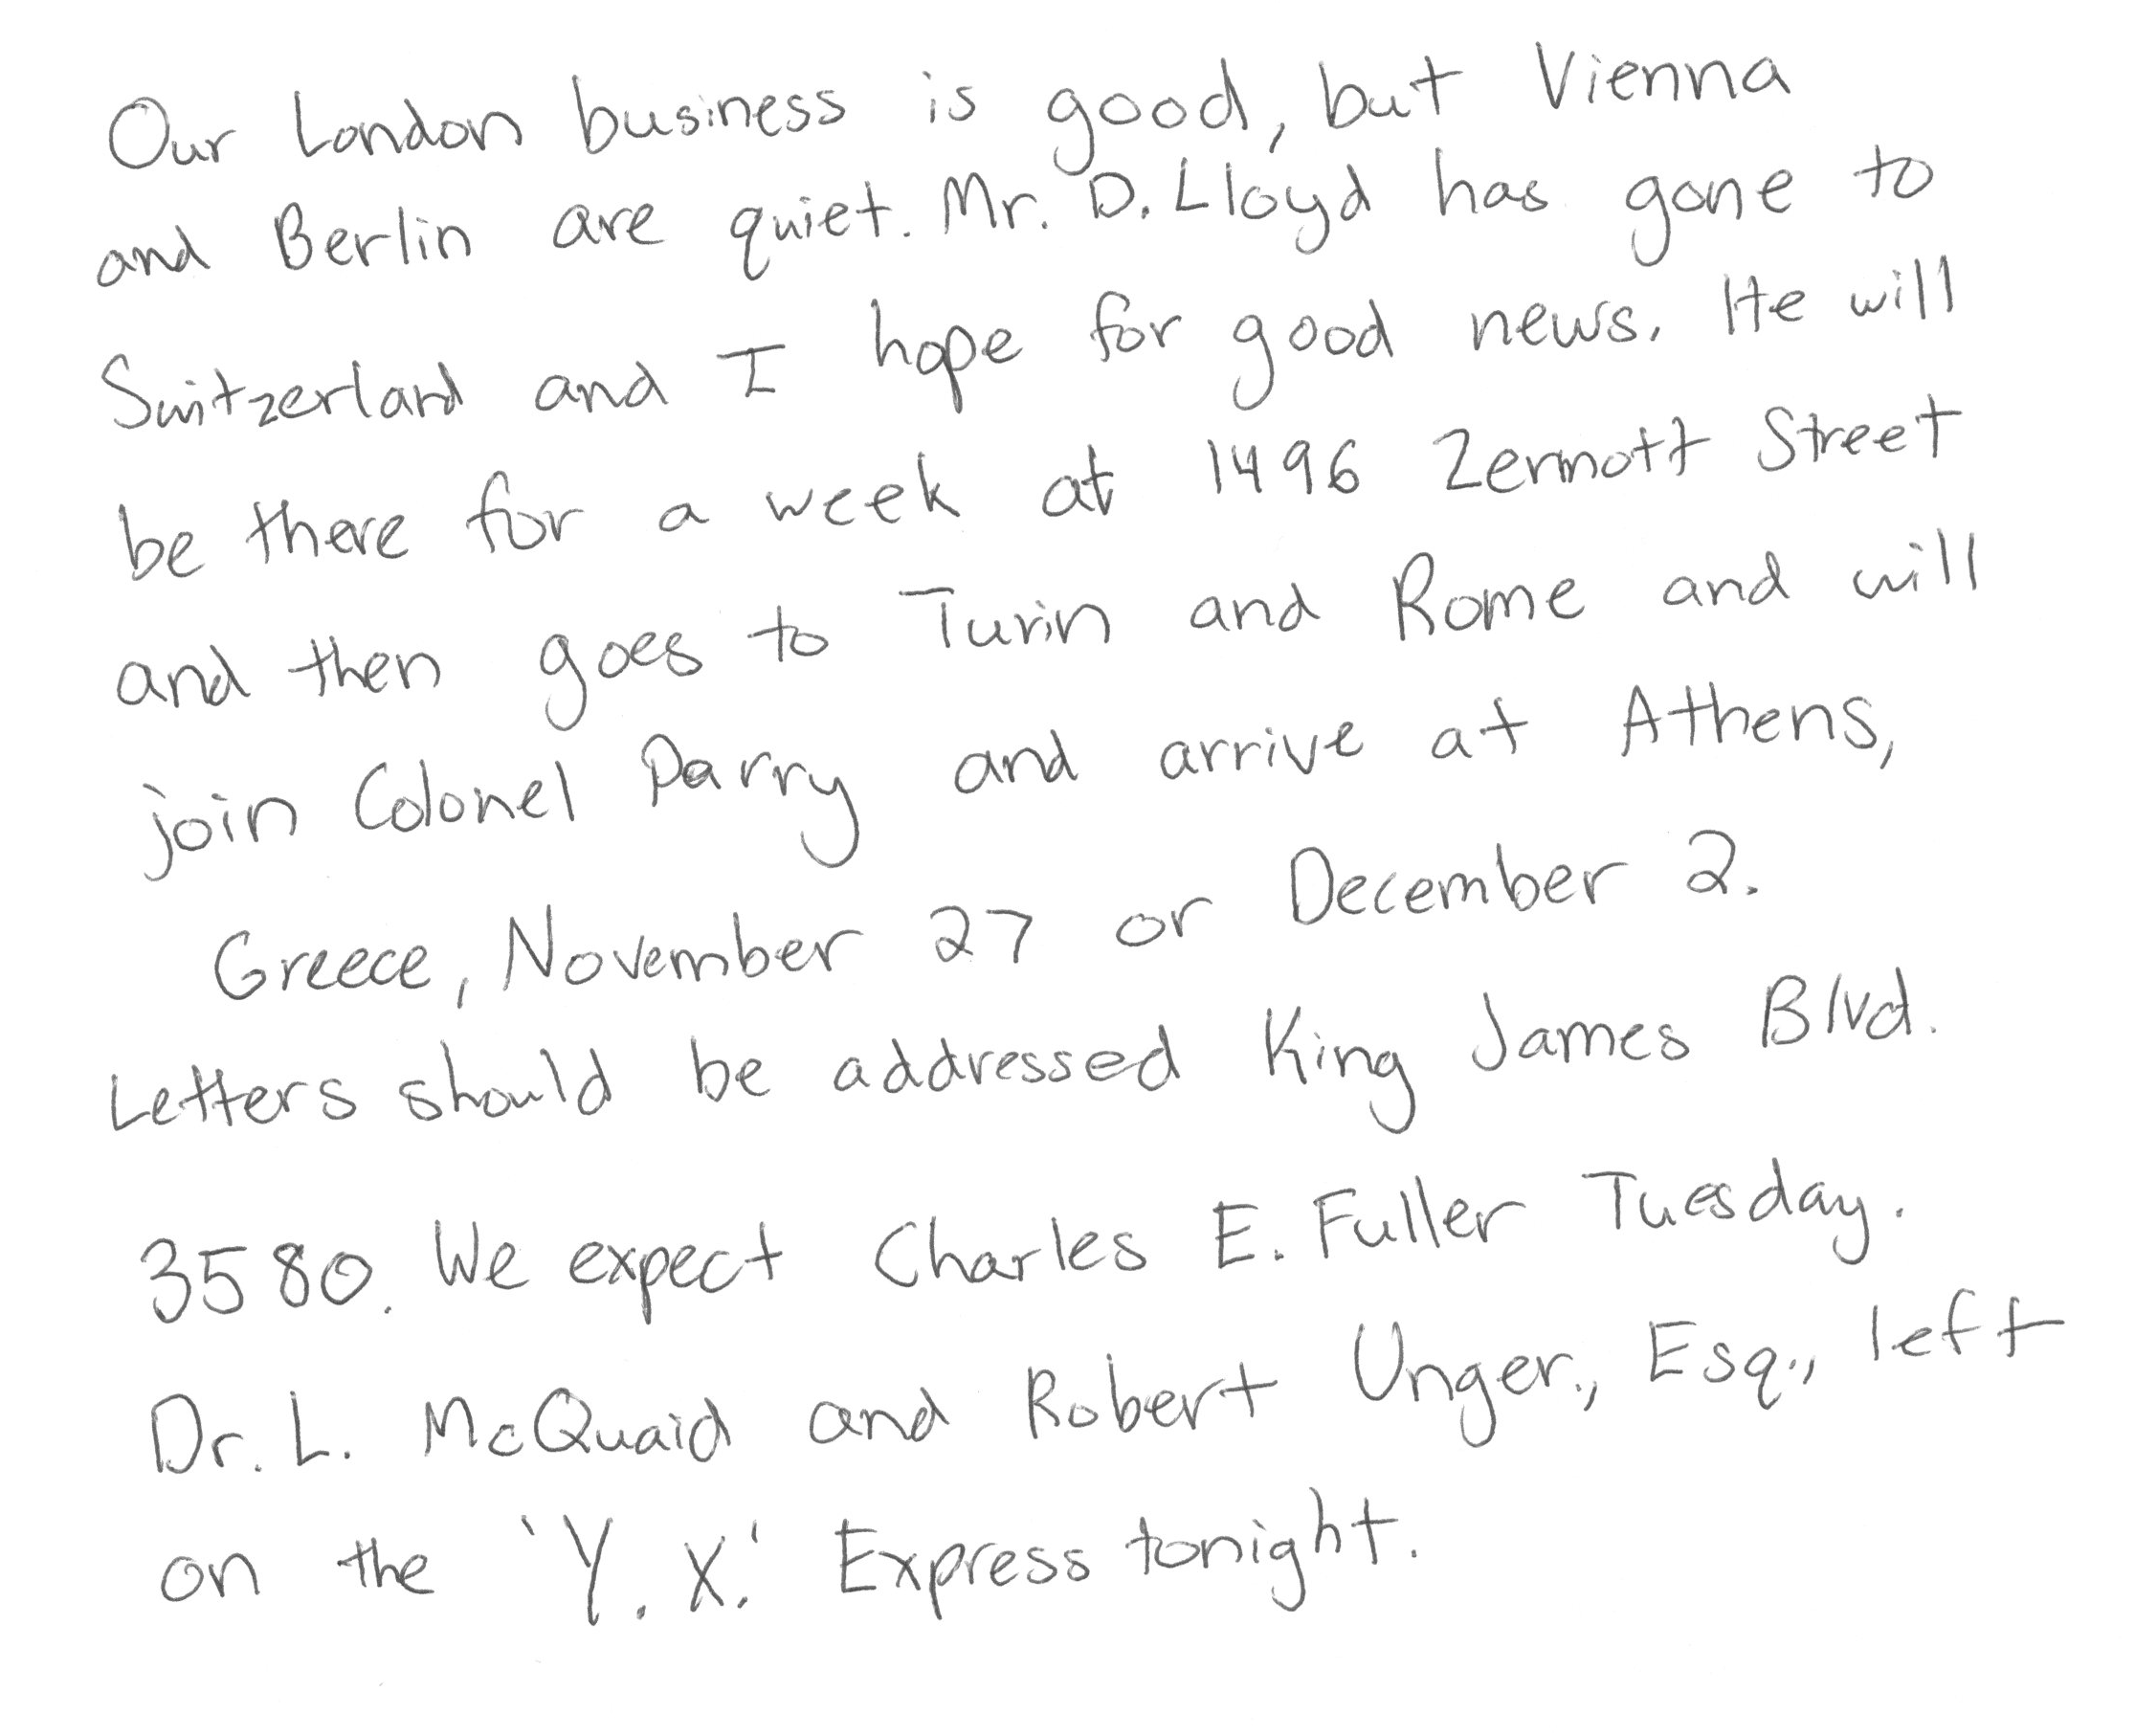 Our London business is good, but Vienna
and Berlin are quiet. Mr. D. Lloyd has gone to
Switzerland and I hope for good news. He will
be there for a week at 1496 Zermott Street
and then goes to Turin and Rome and will
join Colonel Parry and arrive at Athens,
Greece, November 27 or December 2.
Letters should be addressed King James Blvd.
3580. We expect Charles E. Fuller Tuesday.
Dr. L. McQuaid and Robert Unger., Esq., left
on the 'Y. X.' Express tonight.